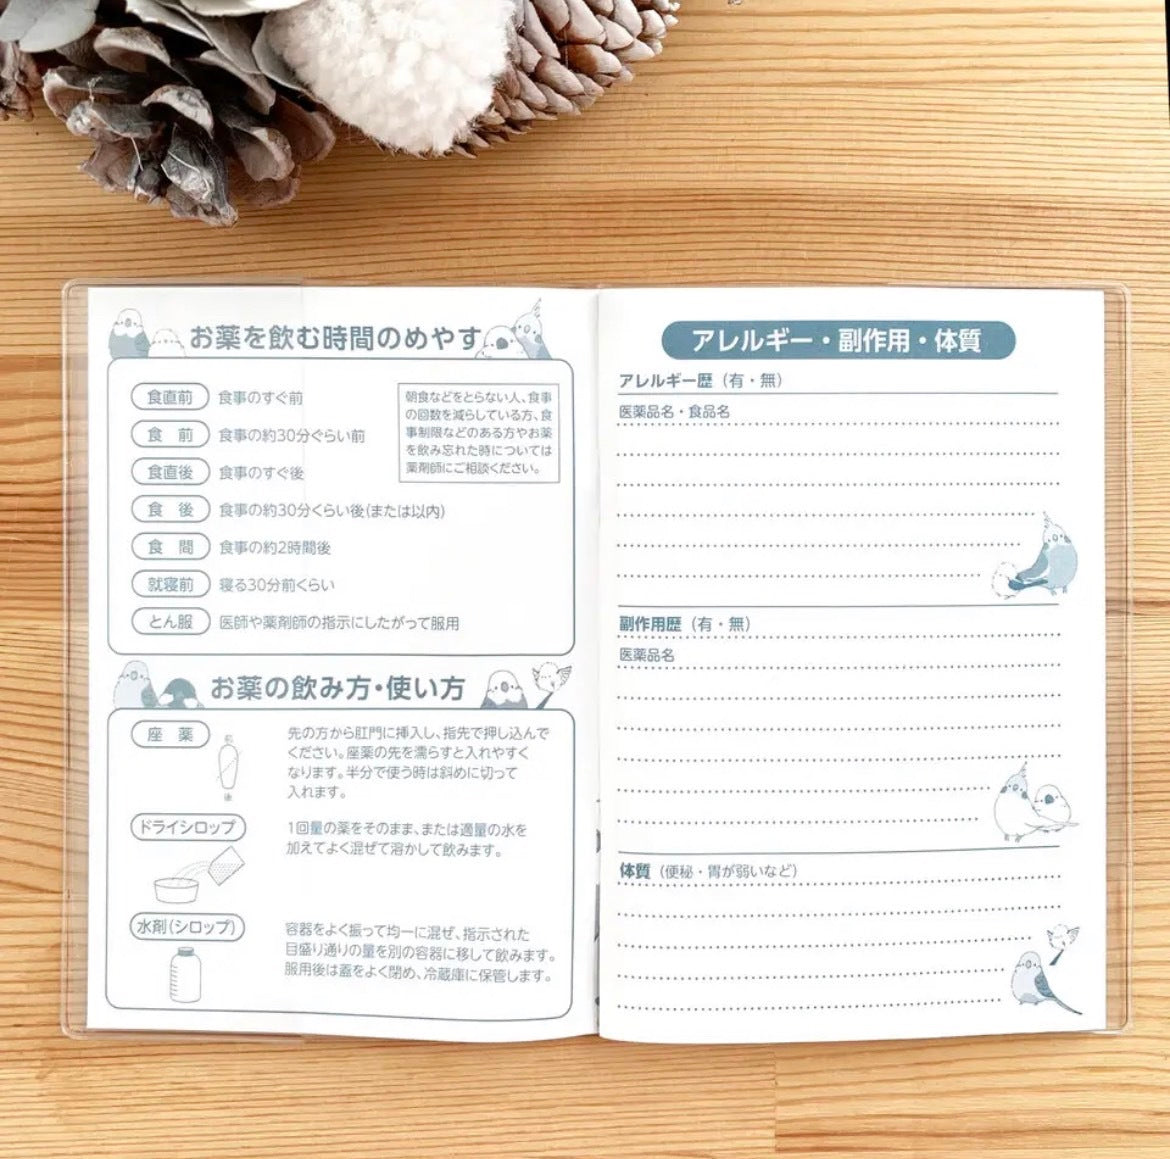 お薬を飲む時間のめやす
食直前 食事のすぐ前
食 前 食事の約30分ぐらい前
食直後 食事のすぐ後
食 後 食事の約30分くらい後(または以内)
食 間 食事の約2時間後
就寝前 寝る30分前くらい
とん服 医師や薬剤師の指示にしたがって服用
朝食などをとらない人、食事
の回数を減らしている方、食
事制限などのある方やお薬
を飲み忘れた時については
薬剤師にご相談ください。
お薬の飲み方・使い方
座 薬
先の方から肛門に挿入し、指先で押し込んで
ください。座薬の先を濡らすと入れやすく
なります。半分で使う時は斜めに切って
入れます。
後
ドライシロップ
1回量の薬をそのまま、または適量の水を
加えてよく混ぜて溶かして飲みます。
水剤(シロップ)
容器をよく振って均一に混ぜ、指示された
目盛り通りの量を別の容器に移して飲みます。
服用後は蓋をよく閉め、冷蔵庫に保管します。
アレルギー・副作用・体質
アレルギー歴(有・無)
医薬品名・食品名
副作用歴(有・無)
医薬品名
体質(便秘・胃が弱いなど)